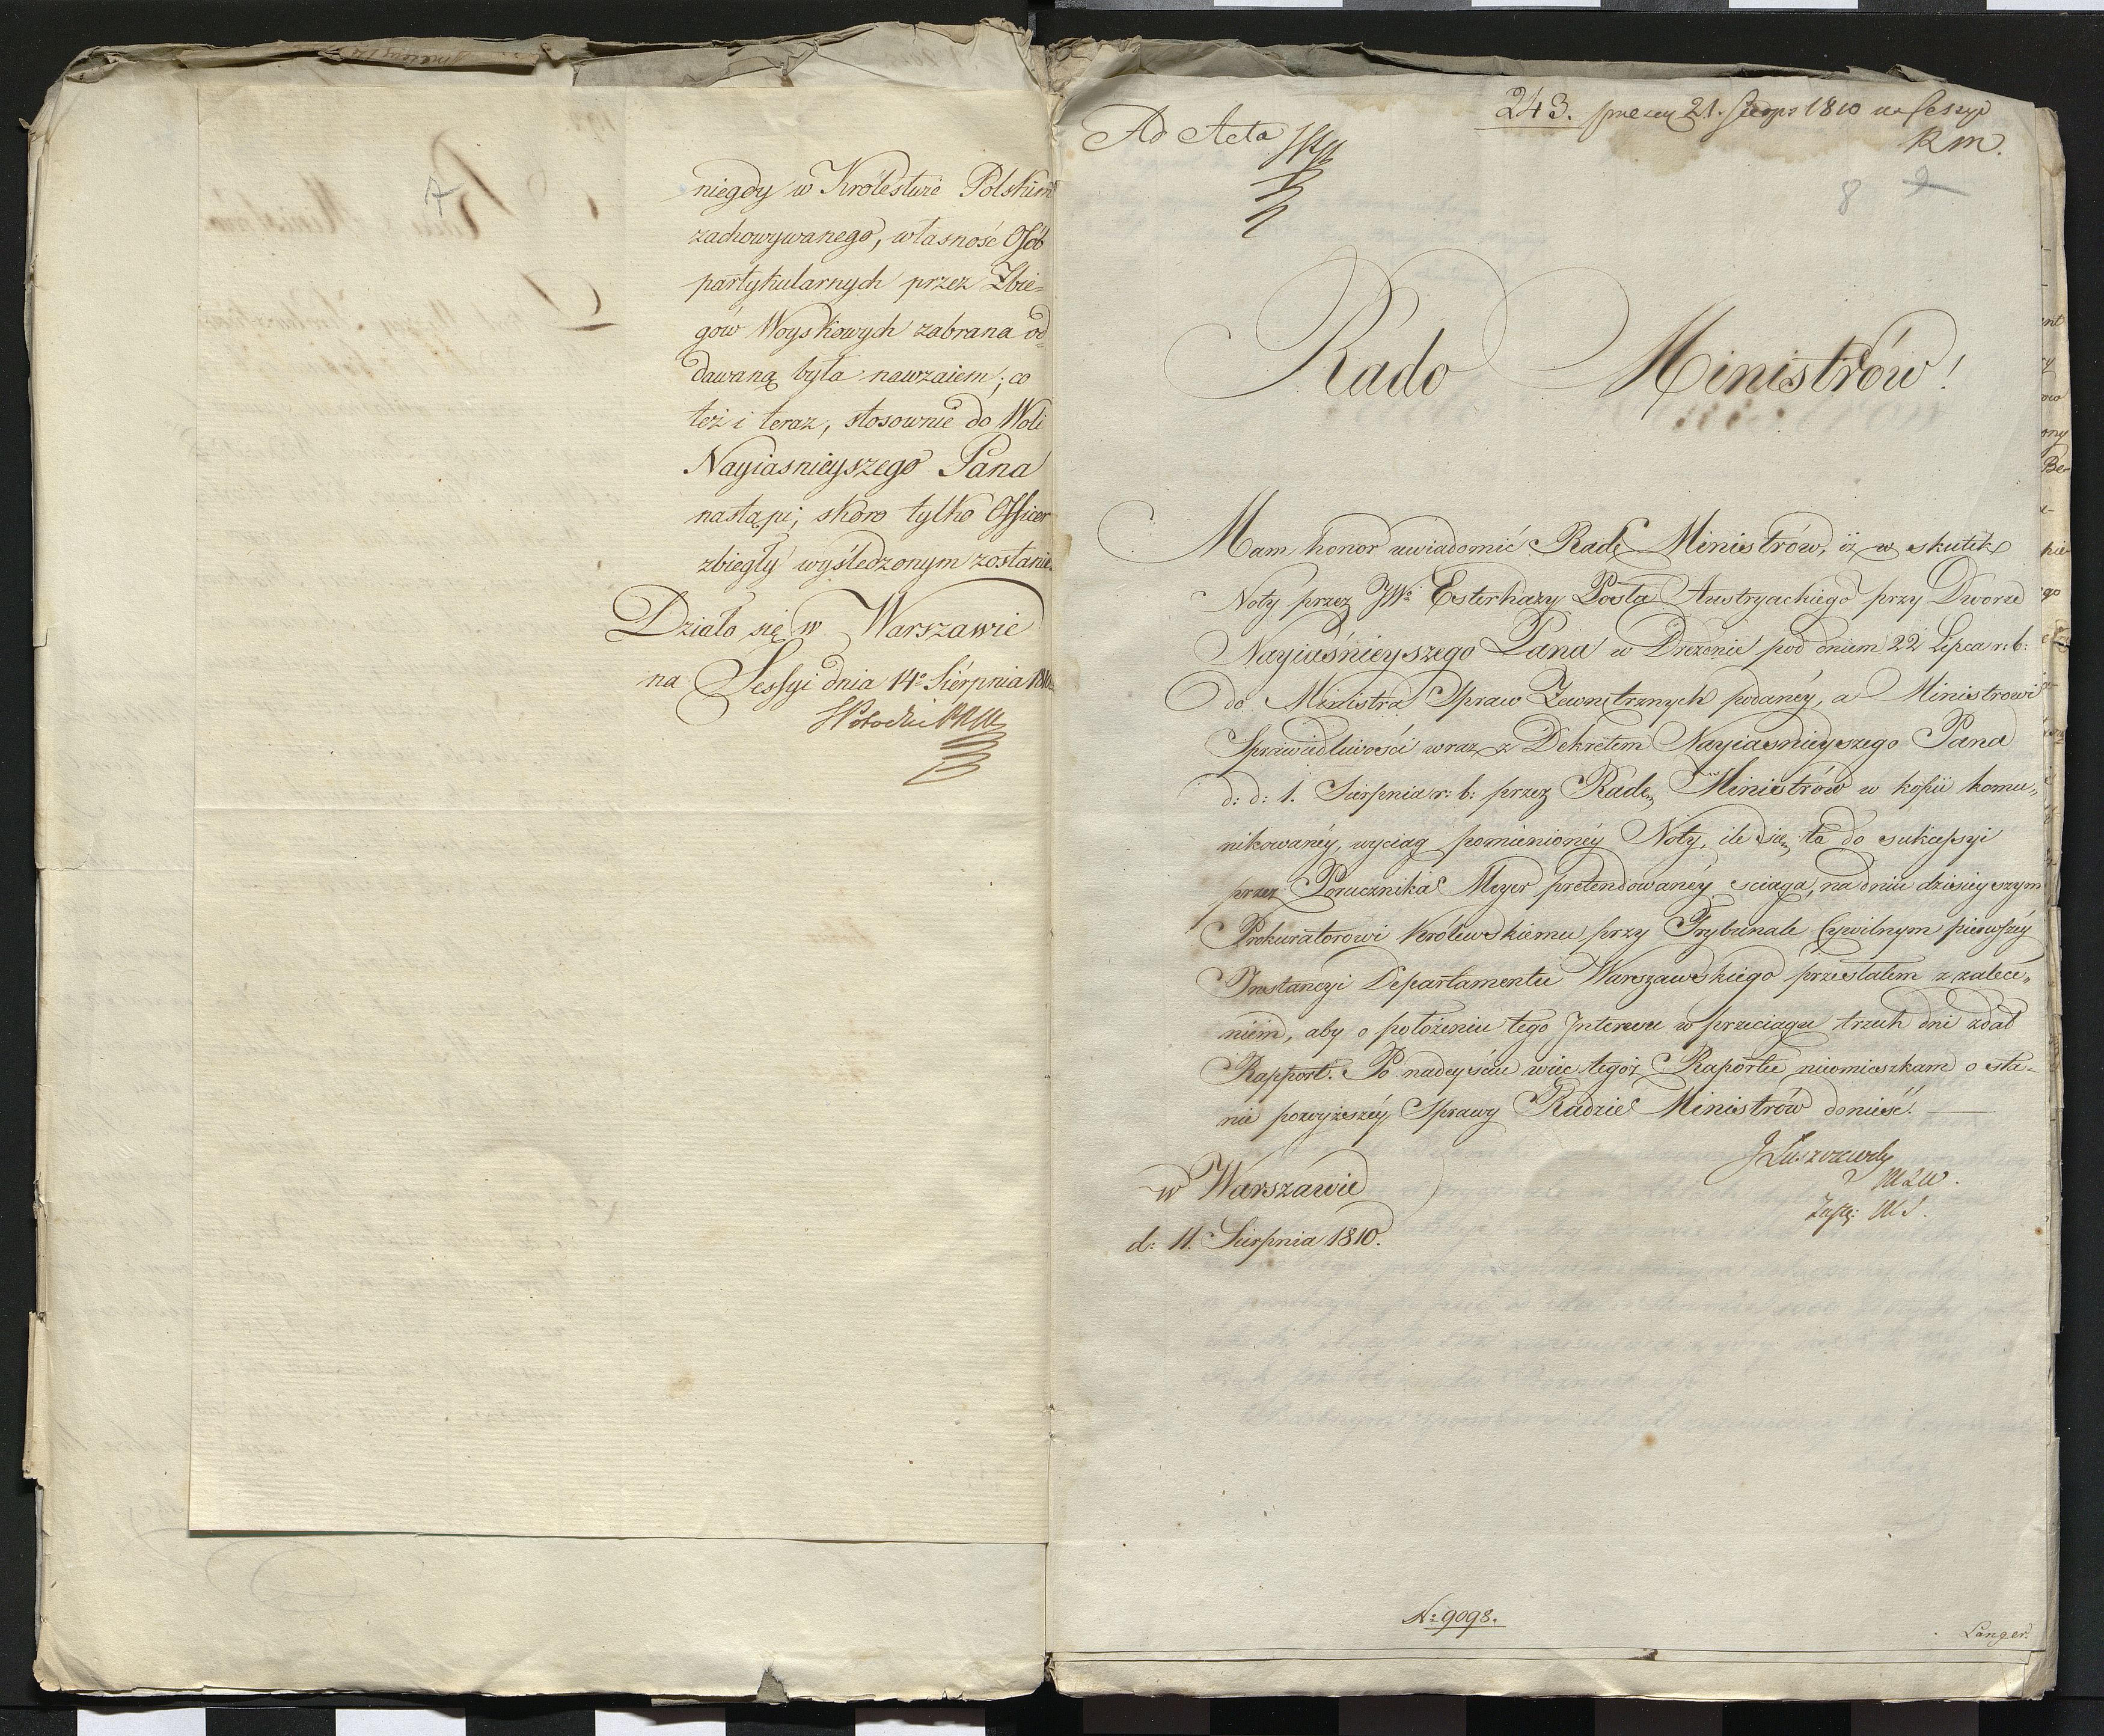 niegdy w Królestwie Polskim
zachowywanego, własność Osób
partykularnych przez Zbie-
gów Woyskowych zabrana od-
dawaną była nawzaiem; co
też i teraz, stosownie do Woli
Nayiasnieyszego Pana
nastąpi; skoro tylko Officer
zbiegły wyśledzonym zostanie.
Działo się w Warszawie
na Sessyi dnia 14º Sierpnia 1810
Ad Acta
243. 21. 1810 na Sessyi
R M.
8
Rado Ministrów!
Mam honor uwiadomić Radę Ministrów, iż w skutek
Noty przez JWº Esterhazy Posła Austryackiego przy Dworze
Nayiaśnieyszego Pana w Dreznie pod dniem 22 Lipca r: b:
do Ministra Spraw Zewnętrznych podaney, a Ministrowi
Sprawiedliwości wraz z Dekretem Nayiasnieyszego Pana
d: d: 1. Sierpnia r: b: przez Radę Ministrów w kopii komu„
nikowaney, wyciąg pomienioney Noty, ile się ta do sukcessyi
przez Porucznika Meyer pretendowaney ściąga, na dniu dzisieyszym
Prokuratorowi Królewskiemu przy Trybunale Cywilnym pierwszey
Instancyi Departamentu Warszawskiego przesłałem z zalece„
niem, aby o położeniu tego Interesu w przeciągu trzech dni zdał
Rapport. Po nadeyściu więc tegoż Raportu nieomieszkam o sta-
nie powyższey Sprawy Radzie Ministrów donieść.
J Łuszczewski
w Warszawie
d: 11. Sierpnia 1810.
Zastę: MS.
Nº 9098.
Langer.